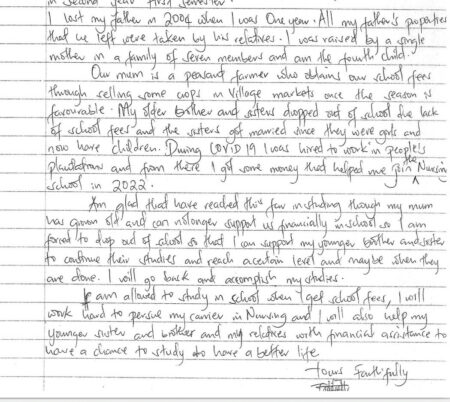 in second year first semester
I lost my father in 2004 when I was One year. All my father's properties
that he left were taken by his relatives. I was raised by a single
mother in a family of seven members and am the fourth child.
Our mum is a peasant farmer who obtains our school fees
through selling some crops in village markets once the season is
favourable. My older brother and sisters dropped out of school due lack
of school fees and the sisters got married since they were girls and
now have children. During COVID 19 I was hired to work in people's
plantations and from there I got some money that helped me join the Nursing
school in 2022.
Am glad that have reached this far in studying though my mum
has grown old and can no longer support us financially in school so I am
forced to drop out of school so that I can support my younger brother and sister
to continue their studies and reach a certain level and maybe when they
are done. I will go back and accomplish my studies.
If am allowed to study in school when I get school fees, I will
work hard to persue my career in Nursing and I will also help my
younger sister and brother and my relatives with financial assistance to
have a chance to study to have a better life.
Yours Faithfully